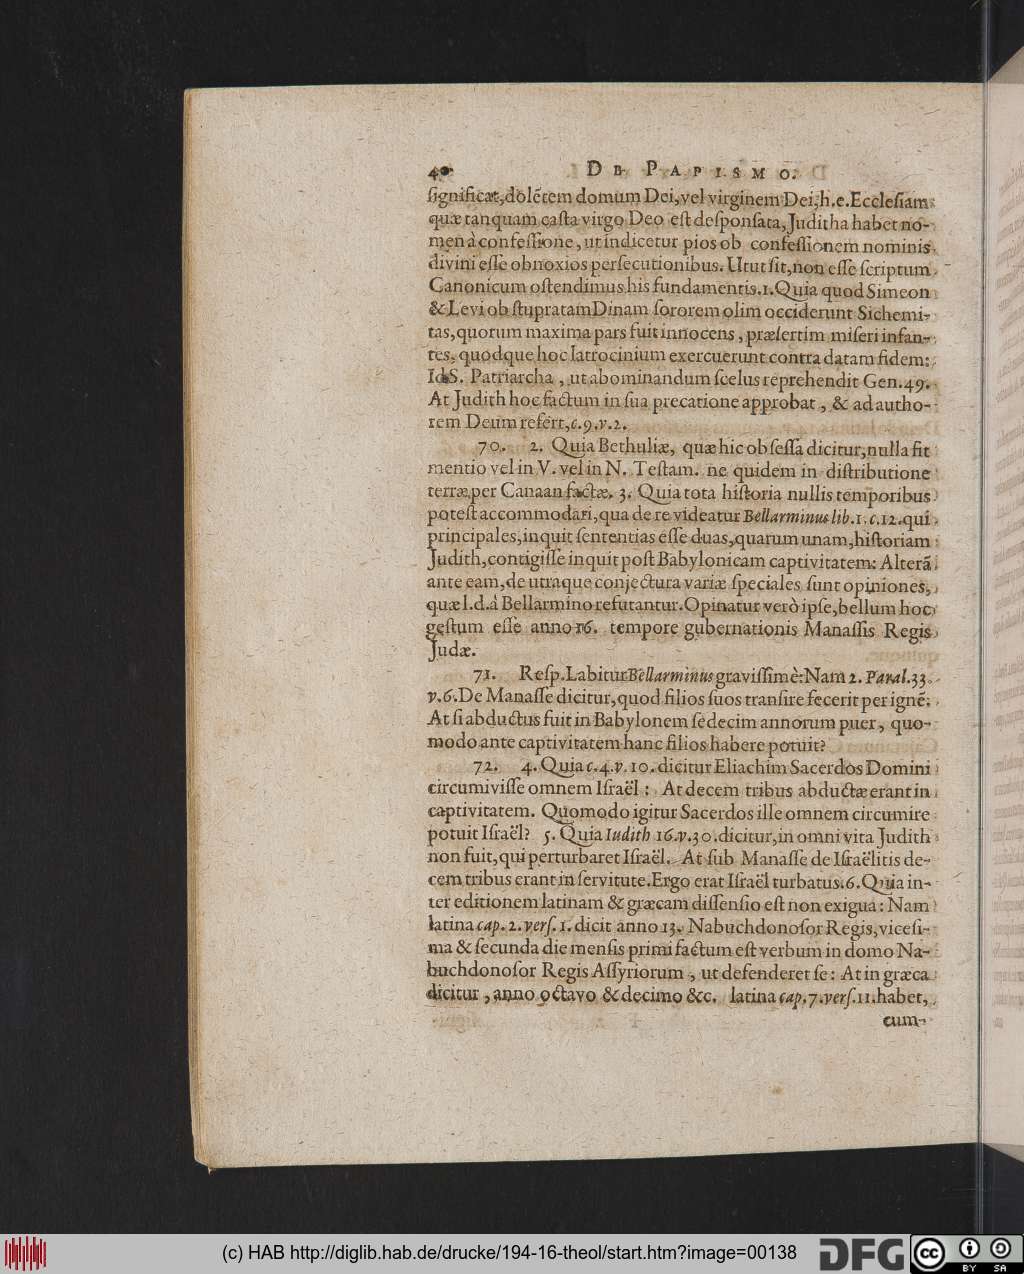 40 DE PAPISMO.
ſignificat,dolẽtem domum Dei,vel virginem Dei,h.e.Eccleſiam
quæ tanquam caſta virgo Deo eſt deſponſata,Juditha habet no-
men à confeſſione, ut indicetur pios ob confeſſionem nominis
divini eſſe obnoxios perſecutionibus. Utut ſit,non eſſe ſcriptum
Canonicum oſtendimus his fundamentis.1.Quia quod Simeon
& Levi ob ſtupratam Dinam ſororem olim occiderunt Sichemi-
tas,quorum maxima pars fuit innocens, præſertim miſeri infan-
tes, quodque hoc latrocinium exercuerunt contra datam fidem:
Id S. Patriarcha, ut abominandum ſcelus reprehendit Gen.49.
At Judith hoc factum in ſua precatione approbat, & ad autho-
rem Deum refert,c.9.v.2.
70. 2. Quia Bethuliæ, quæ hic obſeſſa dicitur,nulla fit
mentio vel in V. vel in N. Teſtam. ne quidem in diſtributione
terræ per Canaan factæ. 3. Quia tota hiſtoria nullis temporibus
poteſt accommodari,qua de re videatur Bellarminus lib.1.c.12.qui
principales,inquit ſententias eſſe duas,quarum unam,hiſtoriam
Judith,contigiſſe inquit poſt Babylonicam captivitatem: Alterã
ante eam,de utraque conjectura variæ ſpeciales ſunt opiniones,
quæ l.d.à Bellarmino refutantur.Opinatur verò ipſe,bellum hoc
geſtum eſſe anno 16. tempore gubernationis Manaſſis Regis
Judæ.
71. Reſp.Labitur Bellarminus graviſſimè:Nam 2. Paral.33.
v.6.De Manaſſe dicitur,quod filios ſuos tranſire fecerit per ignẽ:
At ſi abductus fuit in Babylonem ſedecim annorum puer, quo-
modo ante captivitatem hanc filios habere potuit?
72. 4. Quia c.4.v.10. dicitur Eliachim Sacerdos Domini
circumiviſſe omnem Iſraël: At decem tribus abductæ erant in
captivitatem. Quomodo igitur Sacerdos ille omnem circumire
potuit Iſraël? 5. Quia Iudith 16.v.30.dicitur,in omni vita Judith
non fuit,qui perturbaret Iſraël. At ſub Manaſſe de Iſraëlitis de-
cem tribus erant in ſervitute.Ergo erat Iſraël turbatus.6.Quia in-
ter editionem latinam & græcam diſſenſio eſt non exigua: Nam
latina cap. 2. verſ. 1. dicit anno 13. Nabuchdonoſor Regis,viceſi-
ma & ſecunda die menſis primi factum eſt verbum in domo Na-
buchdonoſor Regis Aſſyriorum, ut defenderet ſe: At in græca
dicitur, anno octavo & decimo &c. latina cap.7.verſ.11.habet,
cum-
(c) HAB http://diglib.hab.de/drucke/194-16-theol/start.htm?image=00138
DFG
cc
BY SA